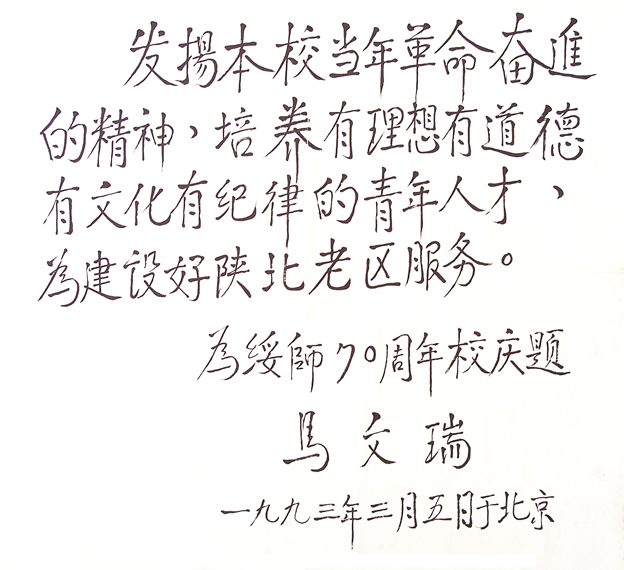 发揚本校当年革命奋進
的精神，培养有理想有道德
有文化有纪律的青年人才，
為建设好陕北老区服务。
為绥師70周年校庆题
馬文瑞
一九九三年三月五日于北京